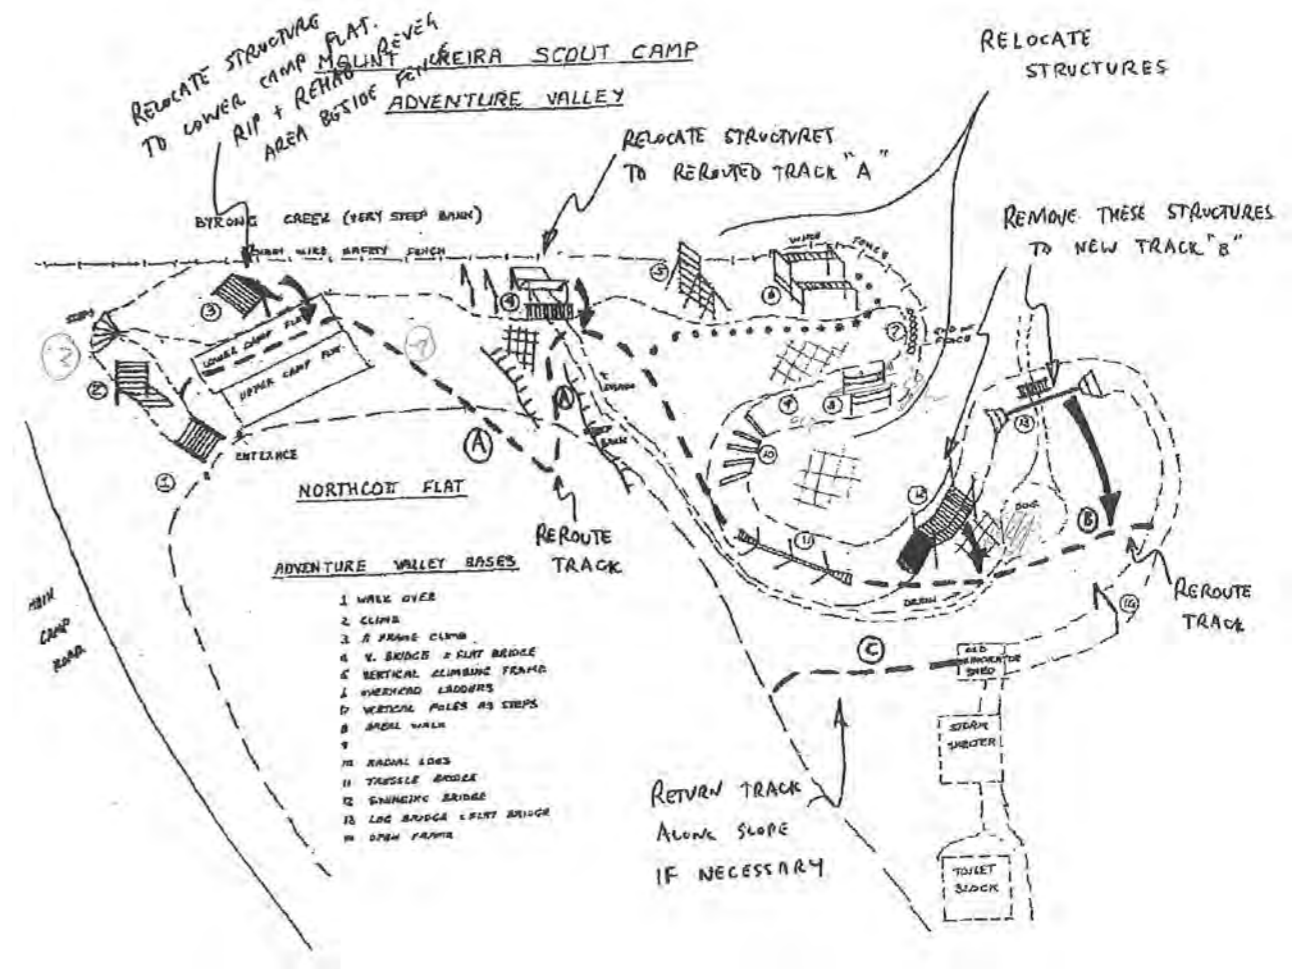 RELOCATE STRUCTURE
TO LOWER CAMP FLAT.
RIP + REHAB
AREA BESIDE FENCE
MOUNT KEIRA SCOUT CAMP
ADVENTURE VALLEY
RELOCATE
STRUCTURES
RELOCATE STRUCTURES
TO REROUTED TRACK "A"
REMOVE THESE STRUCTURES
TO NEW TRACK "B"
BYRONG CREEK (VERY STEEP BANK)
WIRE SAFETY FENCE
STEPS
LOWER CAMP FLAT
UPPER CAMP FLAT
ENTRANCE
1
2
2
3
4
5
6
7
8
9
10
11
12
13
14
A
A
B
C
STEEP
BANK
DRAIN
NORTHCOTT FLAT
REROUTE
TRACK
REROUTE
TRACK
MAIN
CAMP
ROAD
ADVENTURE VALLEY BASES
1 WALK OVER
2 CLIMB
3 A FRAME CLIMB
4 V. BRIDGE & FLAT BRIDGE
5 VERTICAL CLIMBING FRAME
6 OVERHEAD LADDERS
7 VERTICAL POLES AS STEPS
8 AREAL WALK
9
10 RADIAL LOGS
11 TRESSLE BRIDGE
12 SWINGING BRIDGE
13 LOG BRIDGE & FLAT BRIDGE
14 OPEN FRAME
OLD
INCINERATOR
SHED
STORM
SHELTER
TOILET
BLOCK
RETURN TRACK
ALONG SLOPE
IF NECESSARY